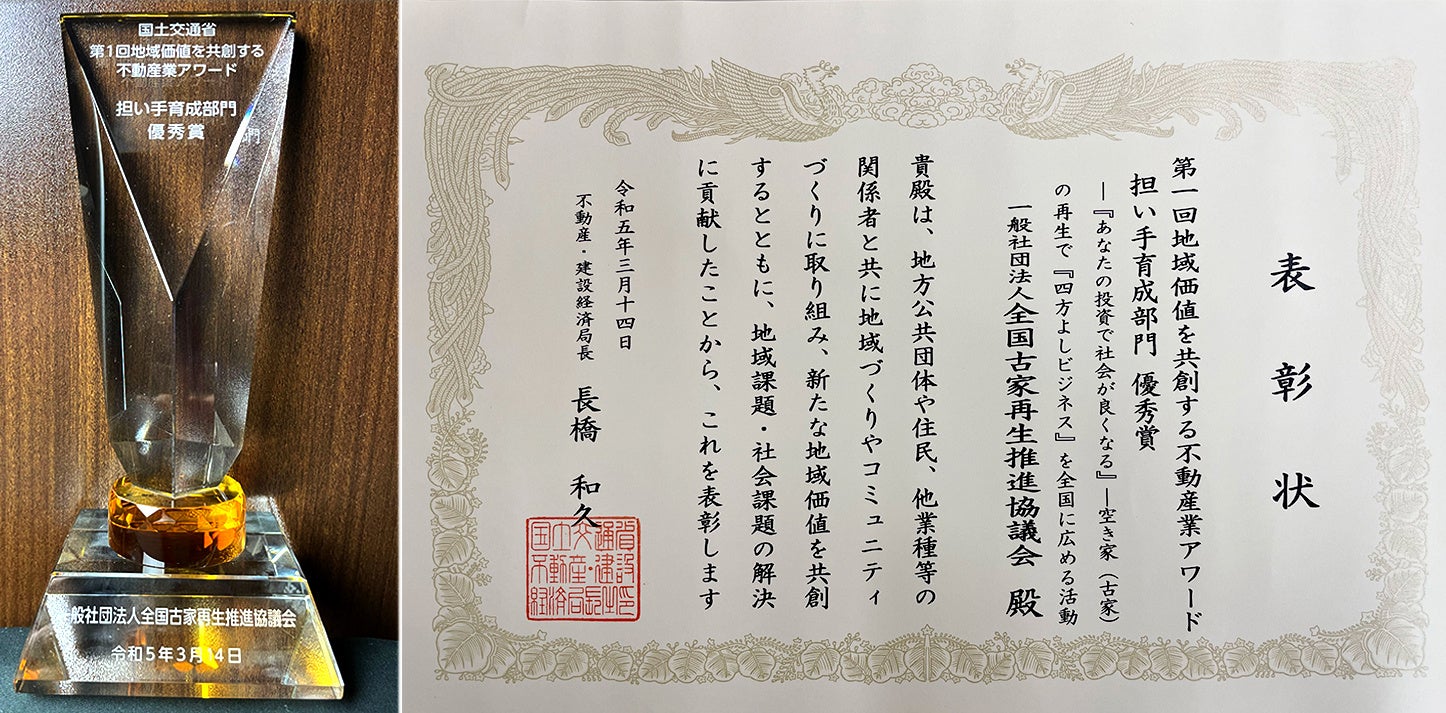 国土交通省
第1回地域価値を共創する
不動産業アワード
担い手育成部門
優秀賞
一般社団法人全国古家再生推進協議会
令和5年3月14日
表彰状
第一回地域価値を共創する不動産業アワード
担い手育成部門 優秀賞
―『あなたの投資で社会が良くなる』―空き家(古家)
の再生で『四方よしビジネス』を全国に広める活動
一般社団法人全国古家再生推進協議会 殿
貴殿は、地方公共団体や住民、他業種等の
関係者と共に地域づくりやコミュニティ
づくりに取り組み、新たな地域価値を共創
するとともに、地域課題・社会課題の解決
に貢献したことから、これを表彰します
令和五年三月十四日
不動産・建設経済局長 長橋 和久
国土交通省
不動産・建設
経済局長之印